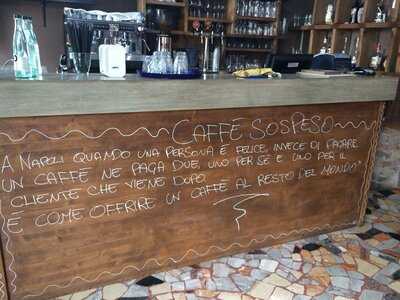 CAFFÈ SOSPESO
A NAPOLI QUANDO UNA PERSONA È FELICE, INVECE DI PAGARE
UN CAFFÈ NE PAGA DUE, UNO PER SÉ E UNO PER IL
CLIENTE CHE VIENE DOPO.
È COME OFFRIRE UN CAFFÈ AL RESTO DEL MONDO"